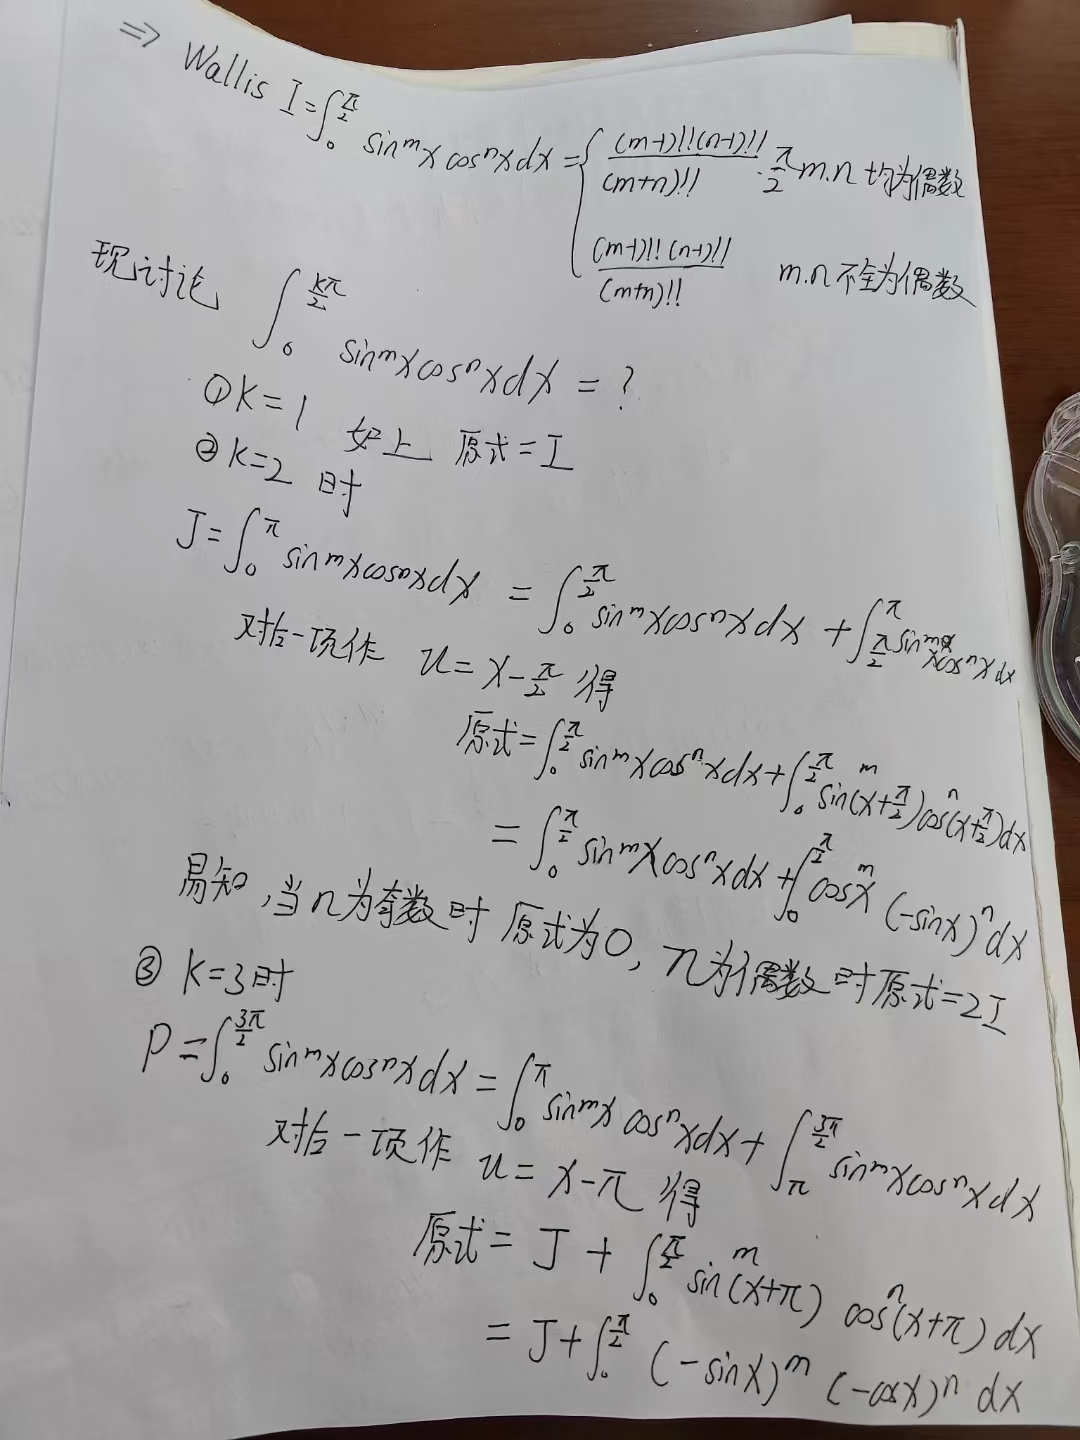 ⇒ Wallis I=∫₀^{π/2} sin^m x cos^n x dx = { (m-1)!!(n-1)!!/(m+n)!! · π/2 m.n 均为偶数
(m-1)!!(n-1)!!/(m+n)!! m.n 不全为偶数
现讨论 ∫₀^{kπ/2} sin^m x cos^n x dx = ?
① K=1 如上 原式=I
② K=2 时
J=∫₀^π sin^m x cos^n x dx = ∫₀^{π/2} sin^m x cos^n x dx + ∫_{π/2}^π sin^m x cos^n x dx
对后一项作 u=x-π/2 得
原式=∫₀^{π/2} sin^m x cos^n x dx + ∫₀^{π/2} sin^m(x+π/2) cos^n(x+π/2) dx
=∫₀^{π/2} sin^m x cos^n x dx + ∫₀^{π/2} cos^m x (-sinx)^n dx
易知,当n为奇数时 原式为0, n为偶数时原式=2I
③ K=3时
P=∫₀^{3π/2} sin^m x cos^n x dx = ∫₀^π sin^m x cos^n x dx + ∫_π^{3π/2} sin^m x cos^n x dx
对后一项作 u=x-π 得
原式= J + ∫₀^{π/2} sin^m(x+π) cos^n(x+π) dx
= J+∫₀^{π/2} (-sinx)^m (-cosx)^n dx